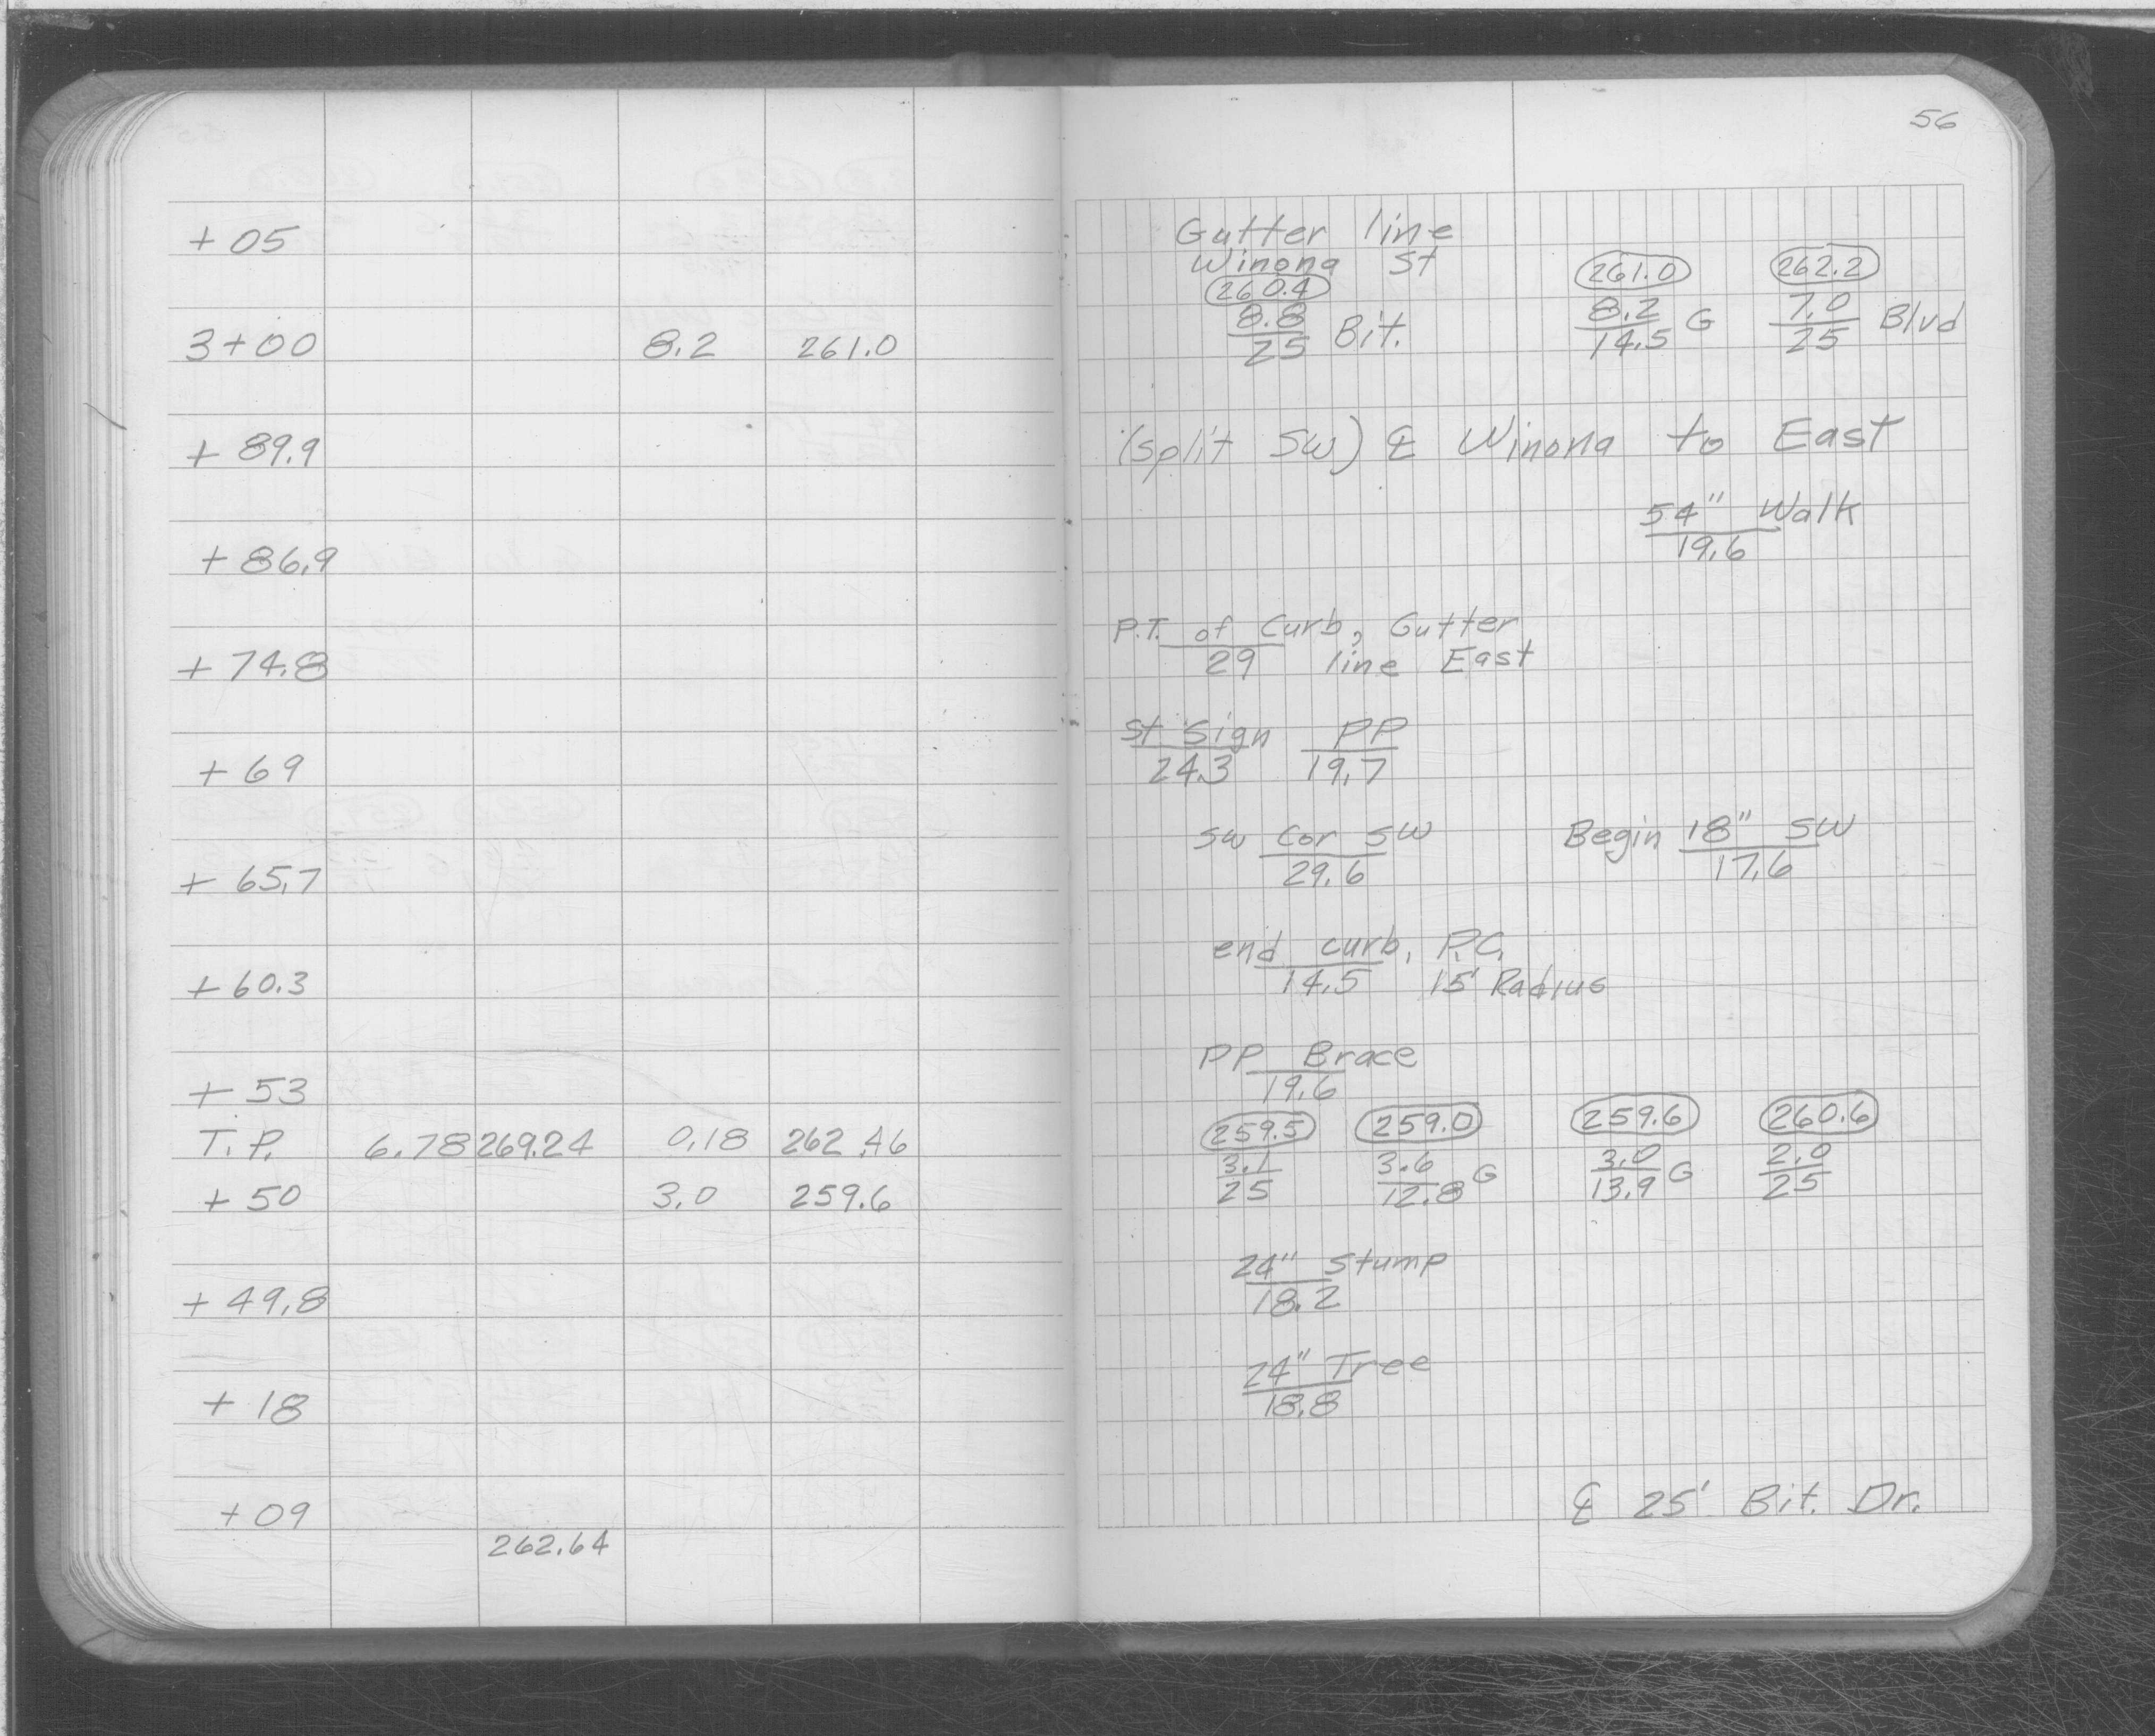 56
+ 05
Gutter line
Winona St
260.4 261.0 262.2
3+00 8.2 261.0
8.8/25 Bit. 8.2/14.5 G 7.0/25 Blvd
+ 89.9
(split SW) ℄ Winona to East
+ 86.9
54" Walk
19.6
+ 74.8
P.T. of Curb, Gutter
29 line East
+ 69
St Sign PP
24.3 19.7
+ 65.7
SW Cor SW Begin 18" SW
29.6 17.6
+ 60.3
end curb, P.C.
14.5 15' Radius
+ 53
PP Brace
19.6
T.P. 6.78 269.24 0.18 262.46
259.5 259.0 259.6 260.6
+ 50 3.0 259.6
3.1/25 3.6/12.8 G 3.0/13.9 G 2.0/25
+ 49.8
24" Stump
18.2
+ 18
24" Tree
18.8
+ 09
℄ 25' Bit. Dr.
262.64